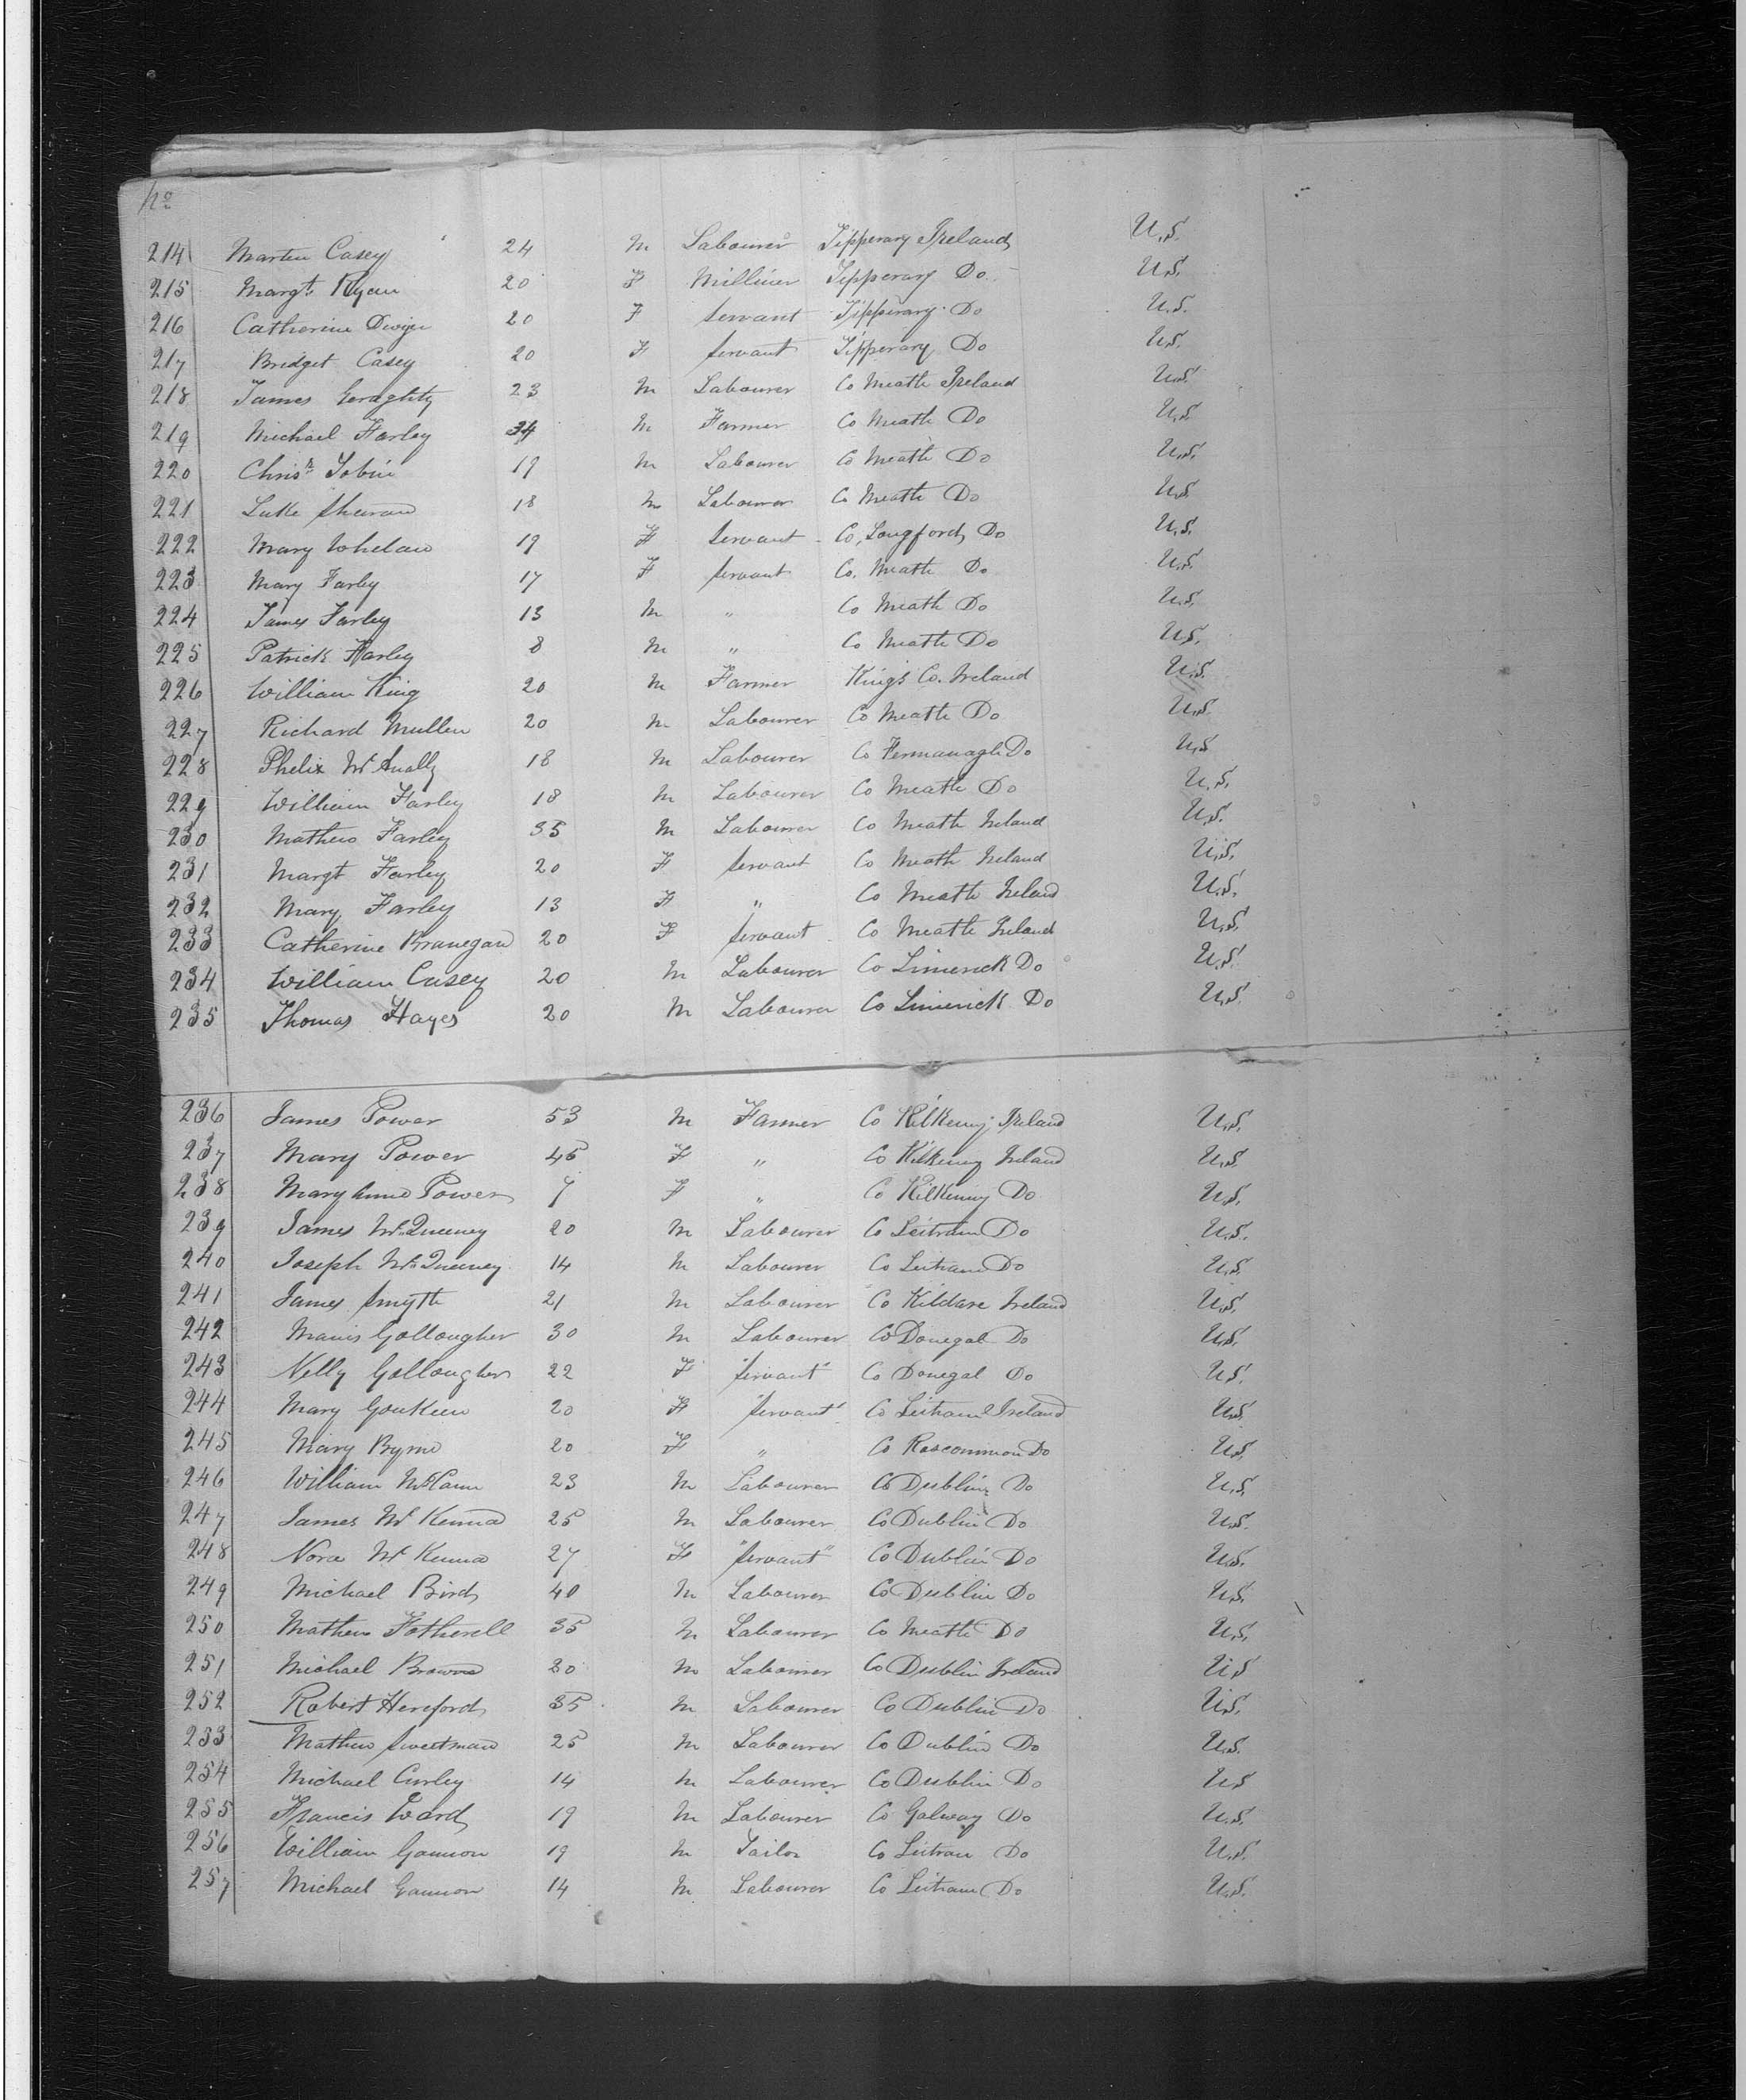 No
214 Martin Casey 24 M Labourer Tipperary Ireland U.S.
215 Margt Ryan 20 F Milliner Tipperary Do U.S.
216 Catherine Dwyer 20 F Servant Tipperary Do U.S.
217 Bridget Casey 20 F Servant Tipperary Do U.S.
218 James Geraghty 23 M Labourer Co Meath Ireland U.S.
219 Michael Farley 34 M Farmer Co Meath Do U.S.
220 Chrisr Tobin 19 M Labourer Co Meath Do U.S.
221 Luke 18 M Labourer Co Meath Do U.S.
222 Mary Whelan 19 F Servant Co. Longford Do U.S.
223 Mary Farley 17 F Servant Co. Meath Do U.S.
224 James Farley 13 M " Co Meath Do U.S.
225 Patrick Farley 8 M " Co Meath Do U.S.
226 William King 20 M Farmer Kings Co. Ireland U.S.
227 Richard Mullen 20 M Labourer Co Meath Do U.S.
228 Phelix McAnally 18 M Labourer Co Fermanagh Do U.S.
229 William Farley 18 M Labourer Co Meath Do U.S.
230 Mathew Farley 35 M Labourer Co Meath Ireland U.S.
231 Margt Farley 20 F Servant Co Meath Ireland U.S.
232 Mary Farley 13 F " Co Meath Ireland U.S.
233 Catherine Branegan 20 F Servant Co Meath Ireland U.S.
234 William Casey 20 M Labourer Co Limerick Do U.S.
235 Thomas Hayes 20 M Labourer Co Limerick Do U.S.
236 James Power 53 M Farmer Co Kilkenny Ireland U.S.
237 Mary Power 45 F " Co Kilkenny Ireland U.S.
238 Mary Anne Power 7 F " Co Kilkenny Do U.S.
239 James McQueeney 20 M Labourer Co Leitram Do U.S.
240 Joseph McQueeney 14 M Labourer Co Leitram Do U.S.
241 James Smyth 21 M Labourer Co Kildare Ireland U.S.
242 Manis Gollougher 30 M Labourer Co Donegal Do U.S.
243 Nelly Gollougher 22 F Servant Co Donegal Do U.S.
244 Mary 20 F Servant Co Leitram Ireland U.S.
245 Mary Byrne 20 F " Co Roscommon Do U.S.
246 William McCann 23 M Labourer Co Dublin Do U.S.
247 James McKenna 25 M Labourer Co Dublin Do U.S.
248 Nora McKenna 27 F "Servant" Co Dublin Do U.S.
249 Michael Bird 40 M Labourer Co Dublin Do U.S.
250 Mathew Fotherell 35 M Labourer Co Meath Do U.S.
251 Michael Browne 30 M Labourer Co Dublin Ireland U.S
252 Robert Hereford 35 M Labourer Co Dublin Do U.S.
233 Mathew Sweetman 25 M Labourer Co Dublin Do U.S.
254 Michael Curley 14 M Labourer Co Dublin Do U.S
255 Francis Ward 19 M Labourer Co Galway Do U.S.
256 William Gannon 19 M Tailor Co Leitram Do U.S.
257 Michael Gannon 14 M Labourer Co Leitram Do U.S.